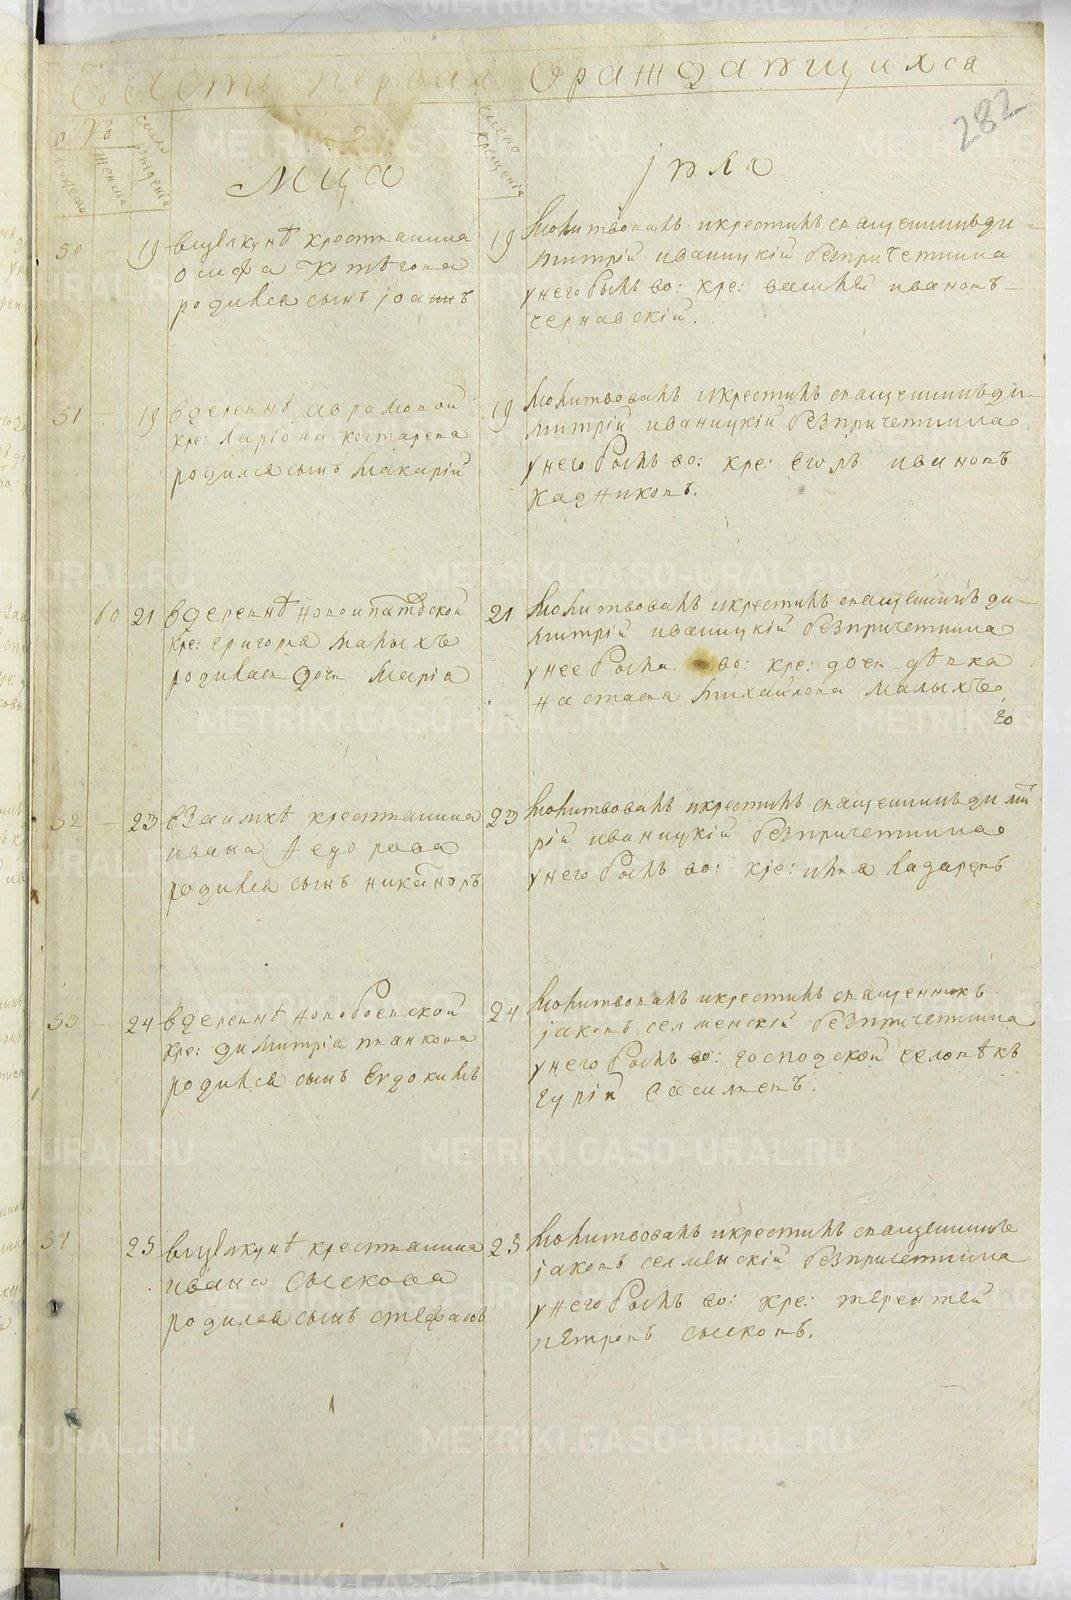 Часть первая ораждающихся
282
№
число рождения
число крещенія
женска
Мца
іюля
50
19
вщелкунѣ крестьянина
осифа Котегова
родился сынъ іоаннъ
19
молитвовалъ икрестилъ священникъ ди-
митрій иваницкій безпричетника
унего былъ во: кре: василей ивановъ
чернавскій.
51
19
вдеревнѣ аврамовой
кре: ларіона костарева
родился сынъ макарій
19
молитвовалъ икрестилъ священникъ ди-
митрій иваницкій безпричетника
унего былъ во: кре: егоръ ивановъ
кадниковъ.
60
21
вдеревнѣ новоипатовской
кре: григорья малыхъ
родилась дочь марія
21
молитвовалъ икрестилъ священникъ ди-
митрій иваницкій безпричетника
унее была во: кре: дочь дѣвка
настасья михайлова малыхъ
52
23
взаимкѣ крестьянина
ивана федорова
родился сынъ никаноръ
23
молитвовалъ икрестилъ священникъ димит
рій иваницкій безпричетника
унего былъ во: кре: илья лазаревъ
53
24
вдеревнѣ новобоевской
кре: димитрія панкова
родился сынъ евдокимъ
24
молитвовалъ икрестилъ священникъ
іаковъ селменскій безпричетника
унего былъ во: господской человѣкъ
гурій васильевъ.
54
25
вщелкунѣ крестьянина
ивана сыскова
родился сынъ стефанъ
25
молитвовалъ икрестилъ священникъ
іаковъ селменскій безпричетника
унего былъ во: кре: терентей
петровъ сысковъ.
METRIKI.GASO-URAL.RU